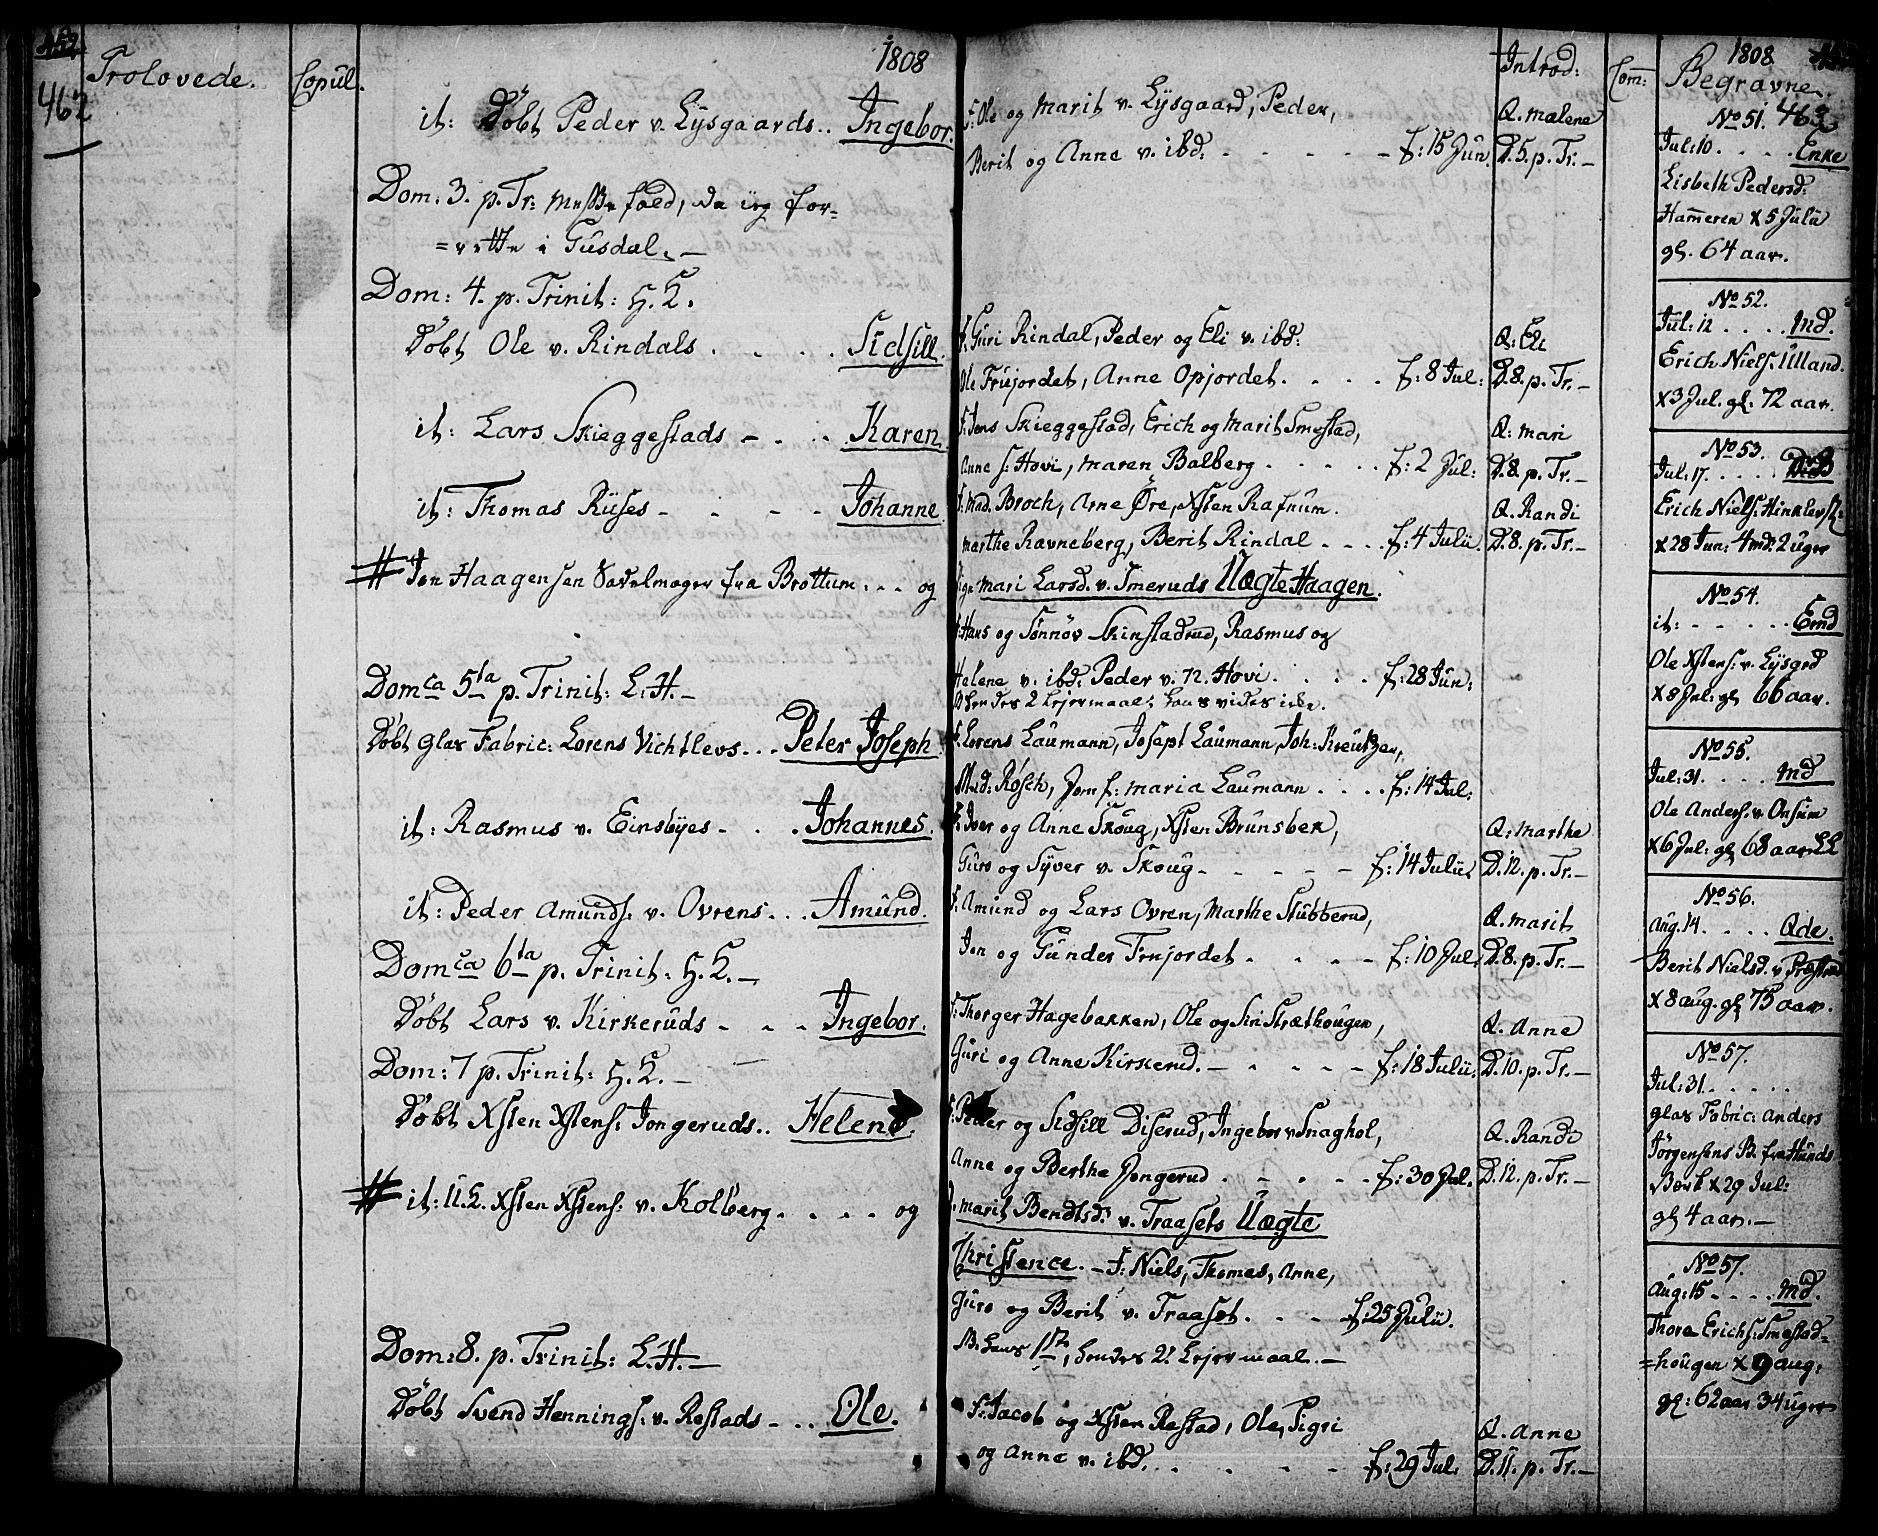 462
Trolovede.
Copul.
1808
it: Döbt Peder v. Lÿsgaards.. Ingebor.
Dom. 3. p. Tr: Messe fald, da ieg for-
=rette i Gusdal. —
Dom: 4. p. Trinit: H. L.
Döbt Ole v. Rindals . . . . Sidsill.
it: Lars Skieggestads - . . . Karen.
it: Thomas Rüses - . . . Johanne
# Jon Haagensen Sadelmager fra Brottum . . . og
Domca 5ta p. Trinit: L. H. —
Döbt Glas Fabric: Lorens Vichtlevs . . . Peter Joseph
it: Rasmus v. Einsbÿes - . . . Johannes.
it: Peder Amunds: v. Ovrens . . . Amünd.
Domca 6ta p. Trinit: H. L. —
Döbt Lars v. Kirkeruds - - - Ingebor.
Dom: 7 p. Trinit: H. L. —
Döbt Xsten Xstens: Jongeruds.. Helene.
# it: U. L. Xsten Xstens: v. Kolberg . . . . og
Dom: 8. p. Trinit: L. H. —
Döbt Svend Hennings: v. Restads - . . Ole.
F: Ole og Marit v. Lÿsgaard, Peder,
Berit og Anne v. ibd. . . . . . f: 15 Jun.
F: Guri Rindal, Peder og Eli v. ibd:
Ole Früjordet, Anne Opjordet. . . . f: 8 Jul:
F: Jens Skieggestad, Erich og Marit Smestad,
Anne s: Hovi, Maren Balberg . . . . . f: 2 Jul:
F: Mad. Broch, Arne Øre, Xsten Rafnum.
Marthe Ravneberg, Berit Rindal . . . . f: 4 Julii.
Pige Mari Larsd. v. Smeruds Uægte Haagen.
F: Hans og Sønnöv Skinstadrud, Rasmus og
Helene v. ibd. Peder v. N. Hovi. . . . f: 28 Jun:
Hendes 2 Leiermaal; hans vides ikke.
F: Lorens Laumann, Josept Laumann, Joh: Kreutzer,
Mad: Rösch, Jomf: Maria Laumann . . . . f: 14 Jul:
F: Iver og Anne Skoug, Xsten Brunsbek,
Guro og Syver v. Skoug - . . . - f: 14 Julii.
F: Amund og Lars Ovren, Marthe Stubberud,
Jon og Gunder Frujordet . . . . f: 10 Jul.
F: Thorger Hagebakken, Ole og Siri Stræthougen,
Guri og Anne Kirkerud. — . . . - f: 18 Julii:
F: Peder og Sidsill Diserud, Ingebor v Snaghol,
Anne og Berthe Jongerud . . . . . f: 30 Jul.
P. Marit Bendtsd: v. Traasets Uægte
Christence. — F: Niels, Thomas, Anne,
Guro og Berit v. Traaset . . . . f: 25 Julii.
NB. Hans 1ste, hendes 2t Leiermaal. —
F: Jacob og Xsten Restad, Ole, Sigri
og Anne v. ibd. . . . . . f: 29 Jul.
Introd:
Q. Malene
D. 5. p. Tr. —
Q: Eli
D. 8. p. Tr. —
Q: Mari
D. 8. p. Tr. —
Q. Randi
D. 8. p. Tr. —
Q: Marthe
D. 12. p. Tr. —
Q. Marit
D. 8. p. Tr. —
Q. Anne
D. 10. p. Tr. —
Q. Randi
D. 12. p. Tr. —
Q. Anne
D. 11. p. Tr. —
Com:
1808
Begravne.
463
No 51.
Jul: 10. . . . . Enke
Lisbeth Pedersd.
Hammeren x 5 Julii
gl. 64 aar.
No 52.
Jul: 12 . . . . Md.
Erich Niels: Ulland.
x 3 Jul. gl. 72 aar.
No 53.
Jul: 17. . . . .
Erich Niels:
x 28 Jun: 4 md: 2 uger
No 54.
it: - . . . . Emd
Ole Xstens: v. Lÿsgrd
x 8 Jul: gl 66 aar.
No 55.
Jul: 31. . . . . Md
Ole Anders: v. Onsum
x 6 Jul: gl 68 aar
No 56.
Aug. 14. . . . . Qde.
Berit Nielsd. v.
x 8 aug. gl 75 aar.
No 57.
Jul: 31. . . . .
Glas Fabric: Anders
Jörgensens B. fra Hunds
Bæk x 29 Jul:
gl 4 aar. —
No 57.
Aug: 15 . . . . Md.
Thore Erichs: Smestad-
=hougen x 9 aug:
gl: 62 aar 34 uger